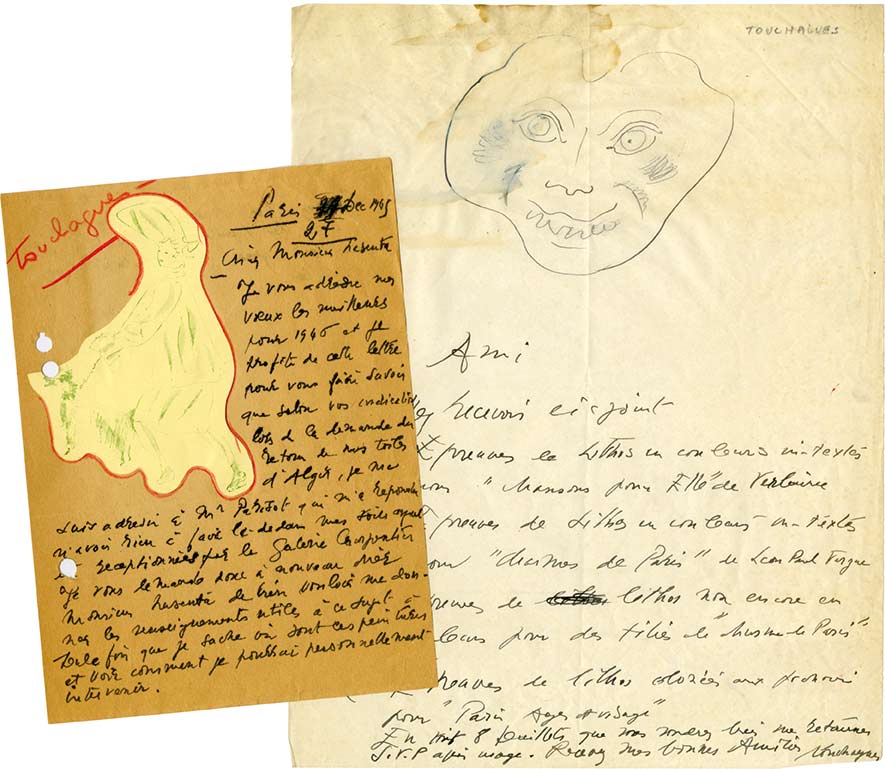 Touchagues
Paris 27 Dec 1945
Cher Monsieur
Je vous adresse mes
vœux les meilleurs
pour 1946 et je
profite de cette lettre
pour vous faire savoir
que selon vos indications
lors de la demande du
retour de mes toiles
d'Alger, je me
suis adressé à Mr qui m'a répondu
n'avoir rien à faire là-dedans mes toiles ayant
été receptionnées par la Galerie Charpentier
Je vous demande donc à nouveau cher
Monsieur de bien vouloir me don-
ner les renseignements utiles à ce sujet à
seule fin que je sache où sont ces peintures
et voir comment je pourrai personnellement
intervenir.
TOUCHAGUES
Ami
recevoir ci-joint
Epreuves de Lithos en couleurs in-textes
"Chansons pour Elle" de Verlaine
preuves de Lithos en couleurs in-textes
"Charmes de Paris" de Leon Paul Fargue
preuves de lithos non encore en
pour des de "Charme de Paris"
Epreuves de lithos coloriées aux
pour "Paris Ages et visage"
En tout 8 feuillets que vous voudrez bien me retourner
S.V.P après usage. Recevez mes bonnes Amitiés Touchagues